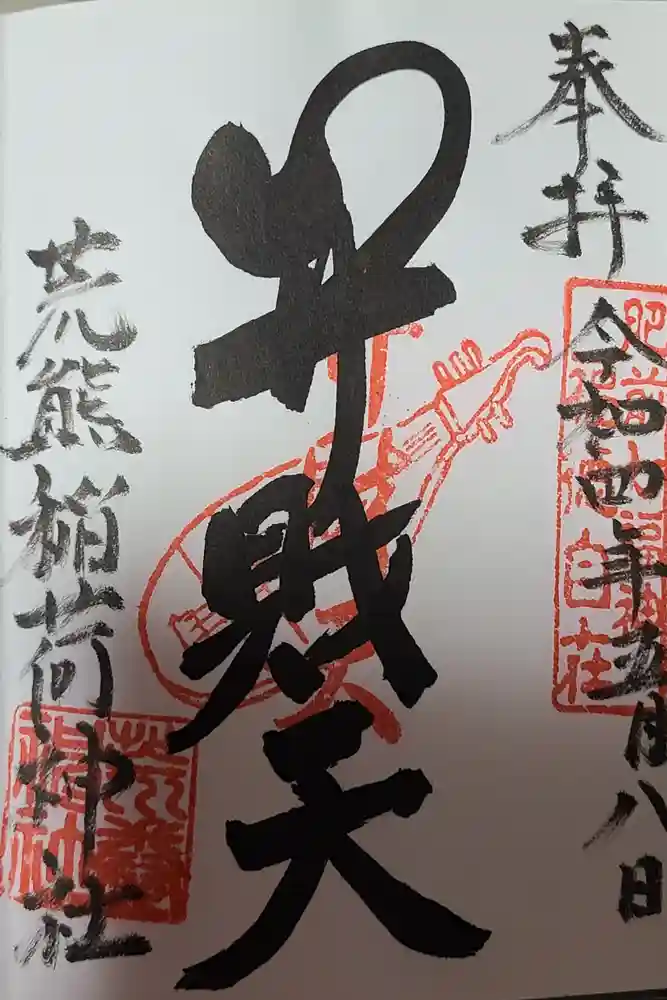 奉拝
令和四年五月八日
弁財天
荒熊稲荷神社